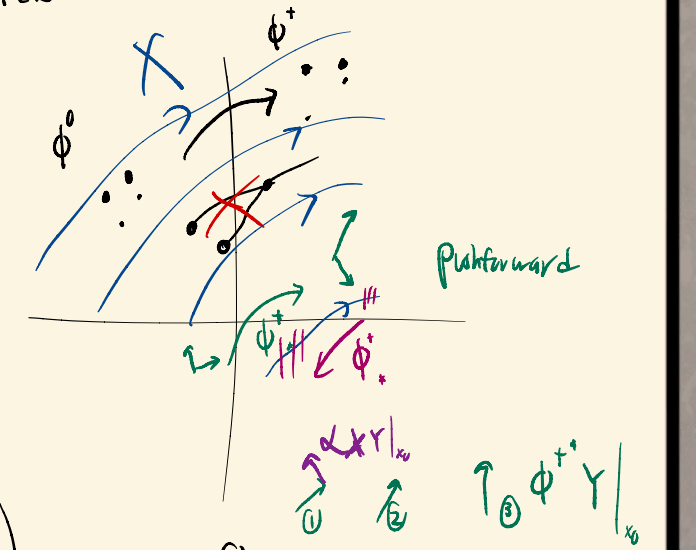 ϕ⁺
X
ϕ⁰
Pushforward
ϕ⁺*
ϕ⁺*
αxY|x₀
① ② ③ ϕ⁺* Y|x₀